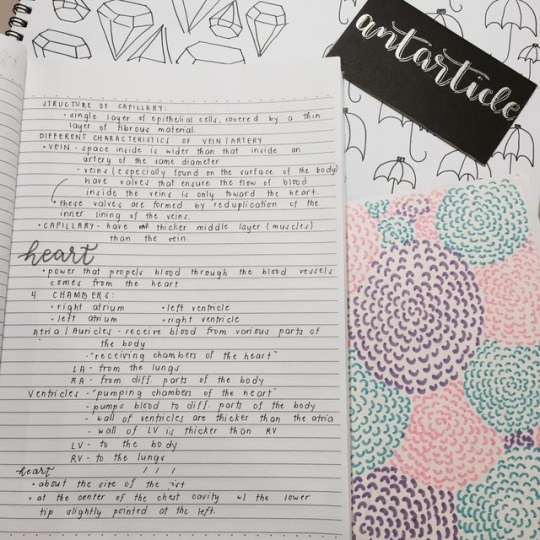 antarticle
STRUCTURE OF CAPILLARY:
• single layer of epithelial cells, covered by a thin
layer of fibrous material
DIFFERENT CHARACTERISTICS OF VEIN/ARTERY
• VEIN - space inside is wider than that inside an
artery of the same diameter
- veins (especially found on the surface of the body)
have valves that ensure the flow of blood
inside the veins is only toward the heart.
* these valves are formed by reduplication of the
inner lining of the veins.
• CAPILLARY - have thicker middle layer (muscles)
than the vein.
heart
• power that propels blood through the blood vessels
comes from the heart
4 CHAMBERS:
• right atrium • left ventricle
• left atrium • right ventricle
Atria/Auricles - receive blood from various parts of
the body
- "receiving chambers of the heart"
LA - from the lungs
RA - from diff. parts of the body
Ventricles - "pumping chambers of the heart"
- pumps blood to diff. parts of the body
- wall of ventricles are thicker than the atria
- wall of LV is thicker than RV
LV - to the body
RV - to the lungs
heart / / /
• about the size of the fist
• at the center of the chest cavity w/ the lower
tip slightly pointed at the left.